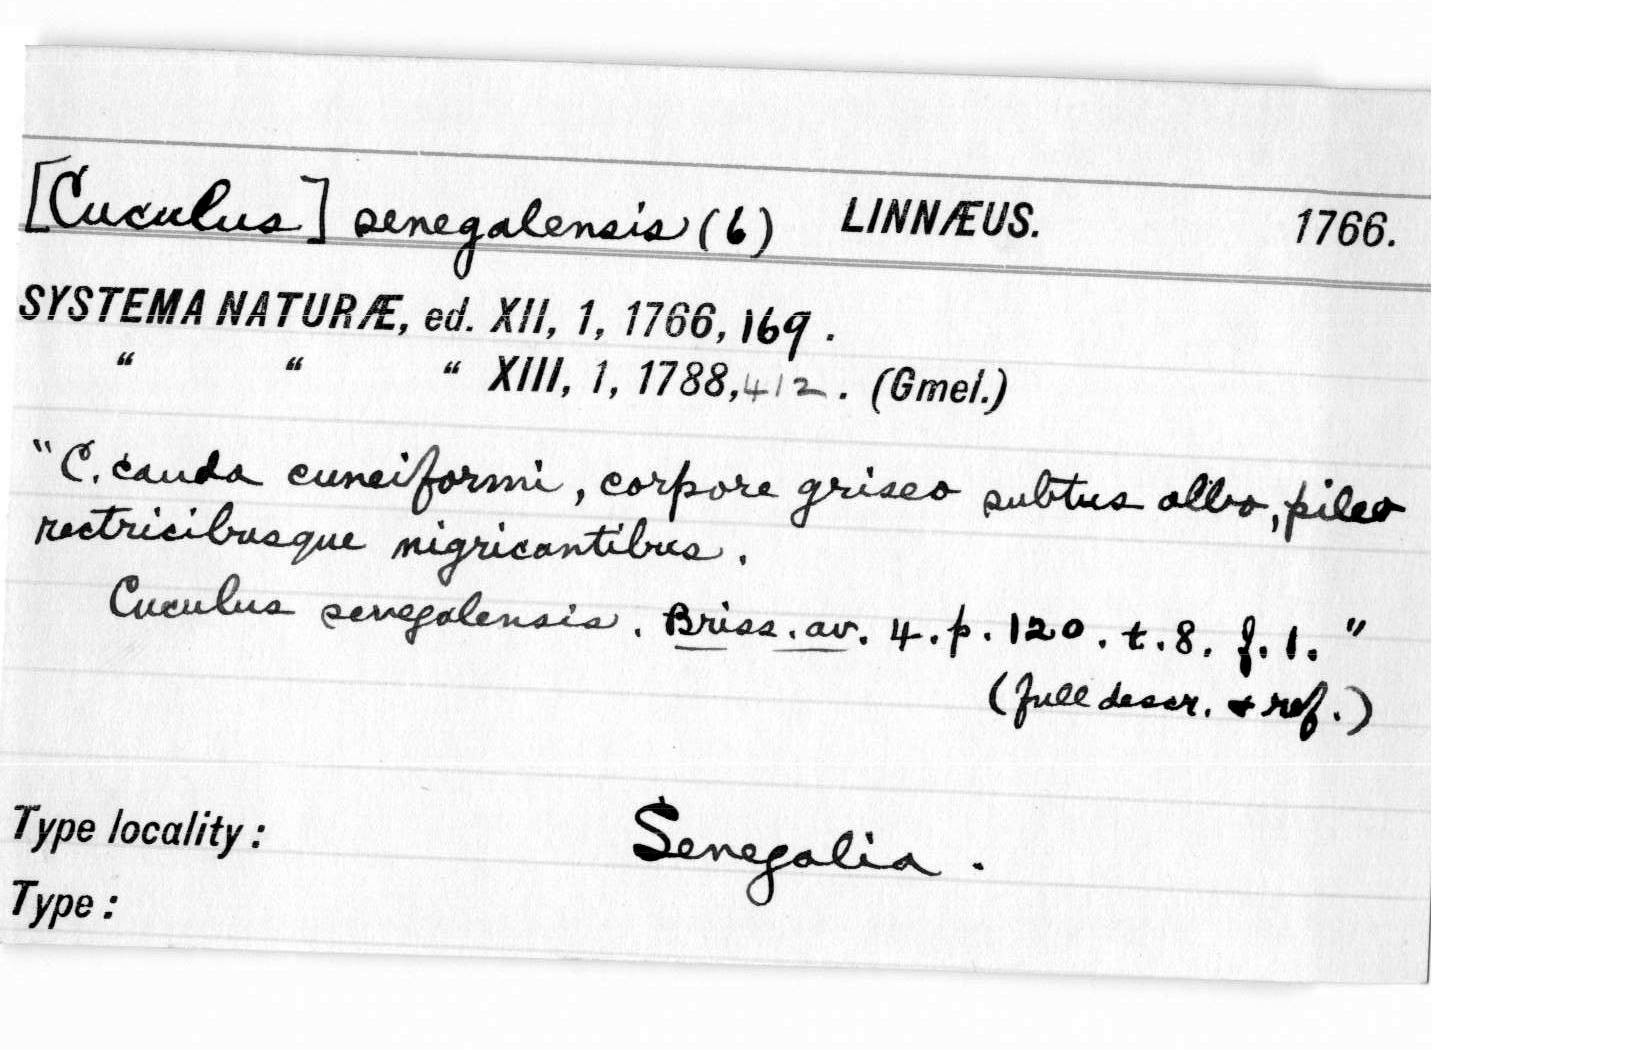 [Cuculus] senegalensis (6) LINNÆUS. 1766.
SYSTEMA NATURÆ, ed. XII, 1, 1766, 169.
“ “ “ XIII, 1, 1788, 412. (Gmel.)
"C. cauda cuneiformi, corpore griseo subtus albo, pileo
rectricibusque nigricantibus.
Cuculus senegalensis. Briss. av. 4. p. 120. t. 8. f. 1."
(full descr. + ref.)
Type locality: Senegalia.
Type: